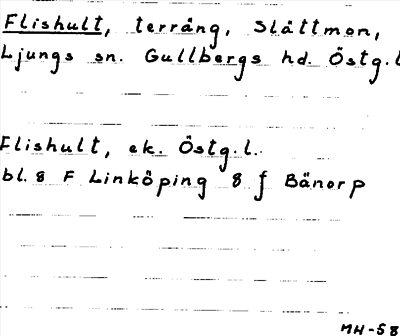 Flishult, terräng, Slättmon,
Ljungs sn. Gullbergs hd. Östg.l
Flishult, ek. Östg.l.
bl. 8 F Linköping 8 f Bänorp
MH-58